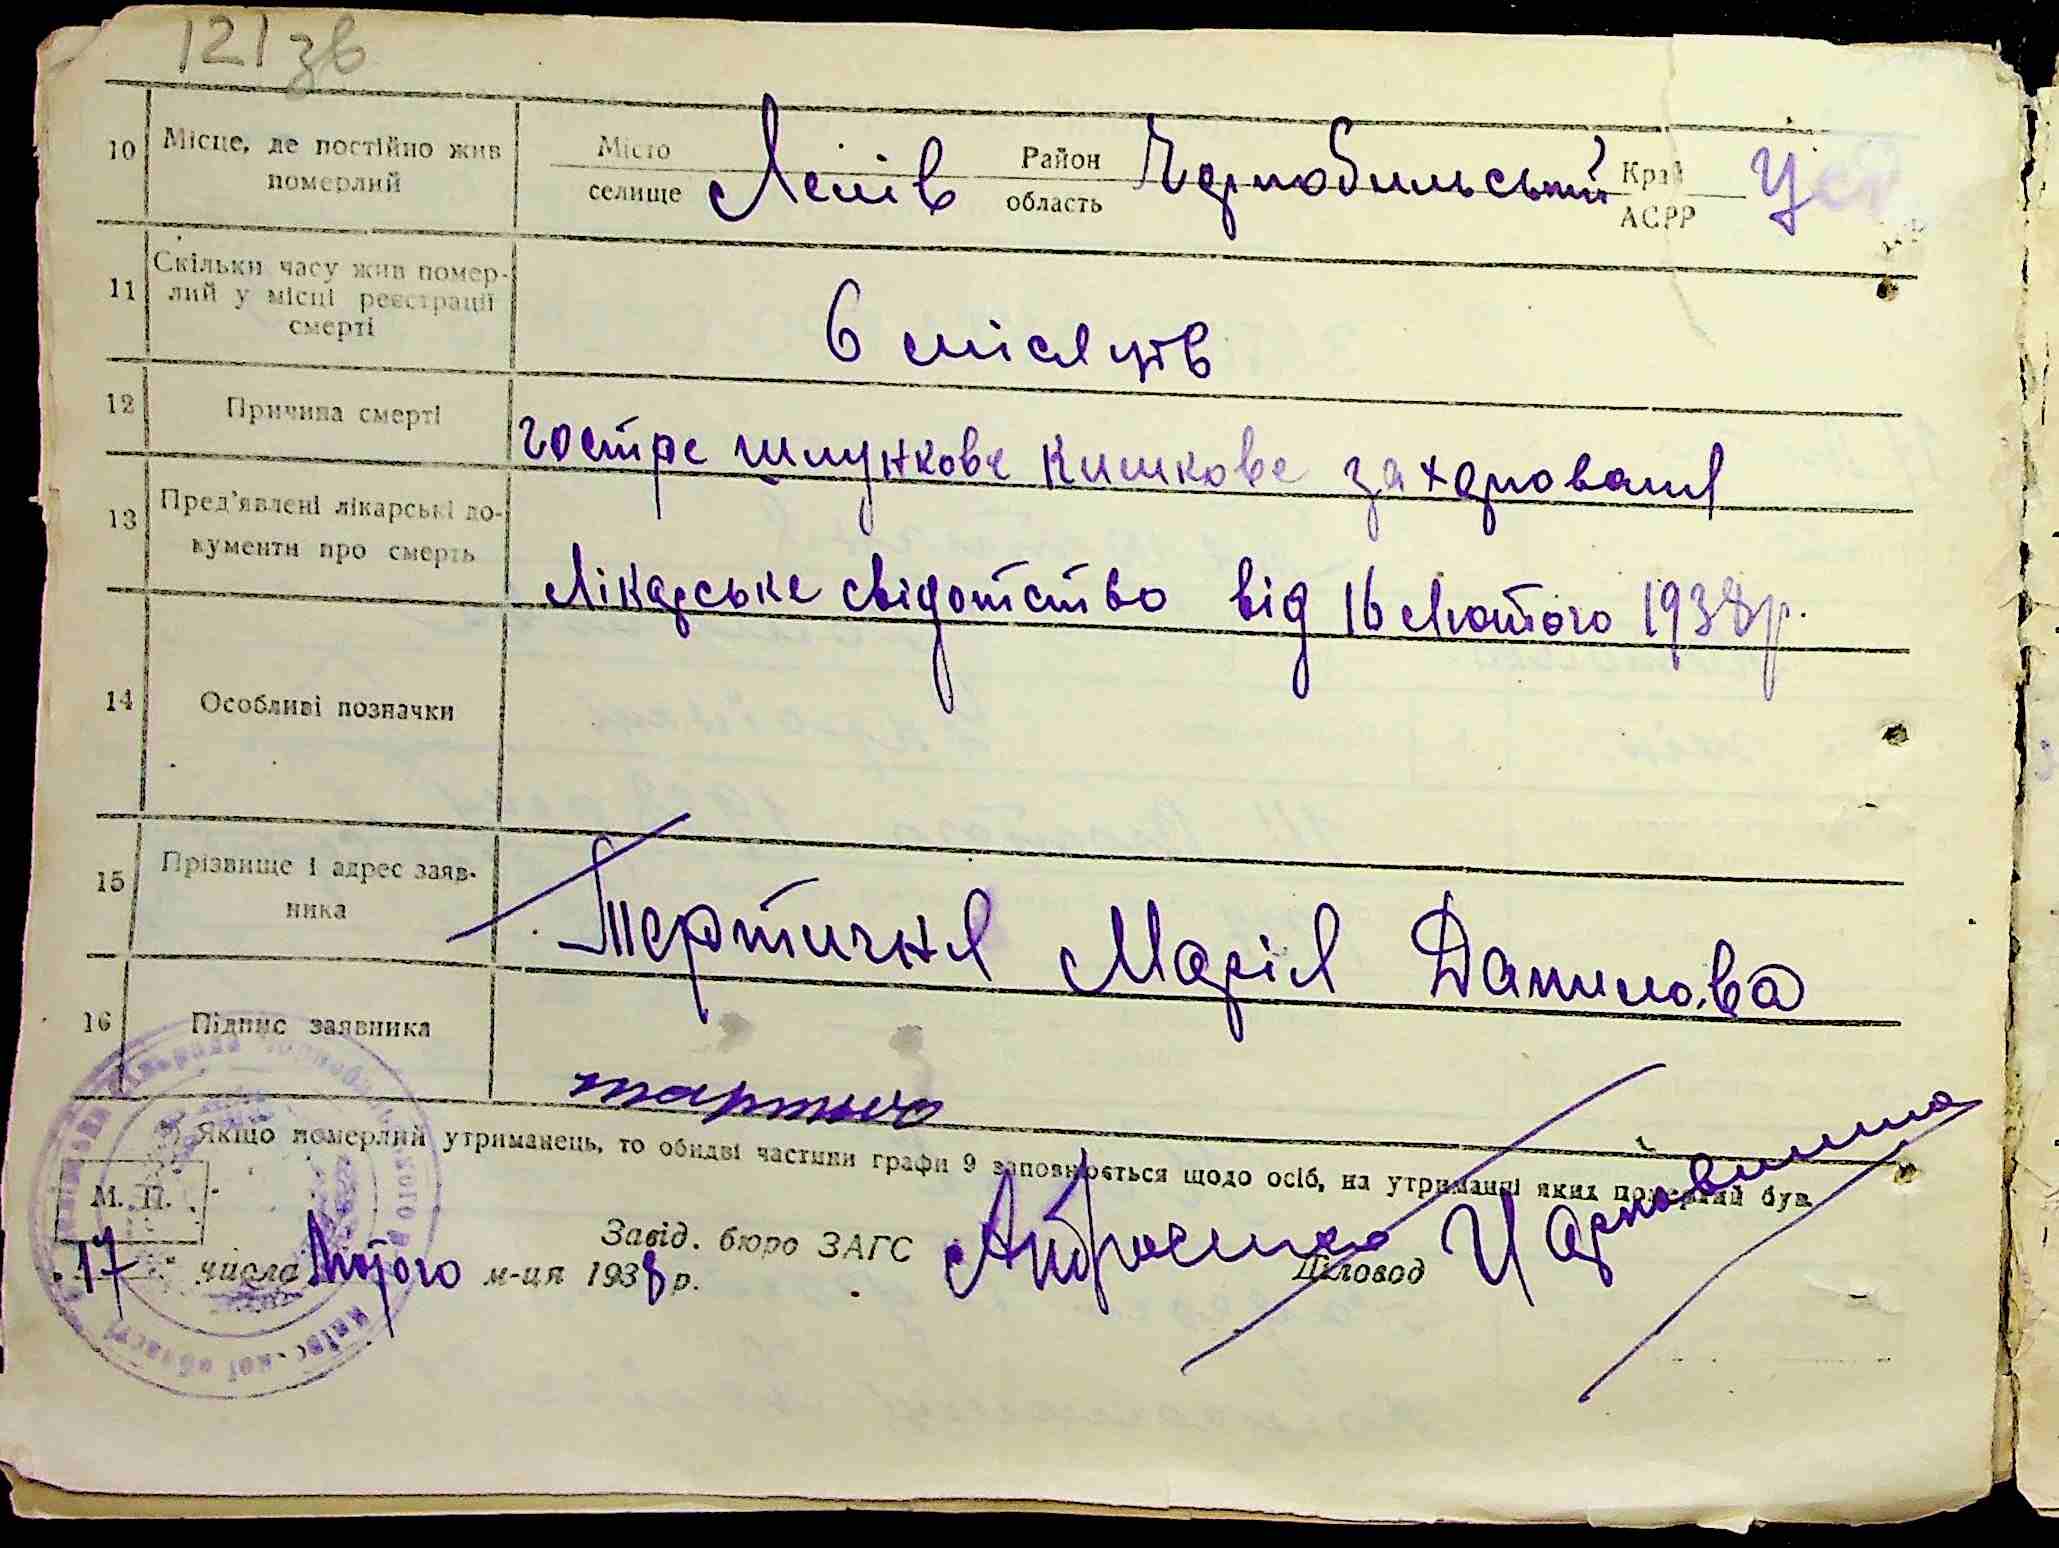 121 зв
10 Місце, де постійно жив померлий Місто селище Лелів Район область Чернобильський Край АСРР Ус
11 Скільки часу жив помер-
лий у місці реєстрації
смерті
6 місяців
12 Причина смерті гостре шлункове кишкове захарованя
13 Пред'явлені лікарські до-
кументи про смерть
Лікарське свідотство від 16 Лютого 1938 р.
14 Особливі позначки
15 Прізвище і адрес заяв-
ника
Тертичня Марія Данилова
16 Підпис заявника
*) Якщо померлий утриманець, то обидві частини графи 9 заповнюється щодо осіб, на утриманні яких померлий був
М. П.
Завід. бюро ЗАГС Діловод
17 числа Лютого м-ця 1938 р.
Київської області